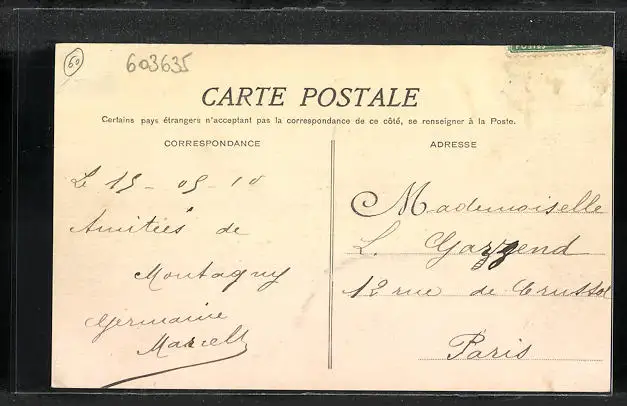 60
603635
POSTES
CARTE POSTALE
Certains pays étrangers n'acceptant pas la correspondance de ce côté, se renseigner à la Poste.
CORRESPONDANCE
Le 15 - 05 - 10
Amitiés de
Montagny
Germaine
Marcell
ADRESSE
Mademoiselle
L. Gazzend
12 rue de Crussol
Paris